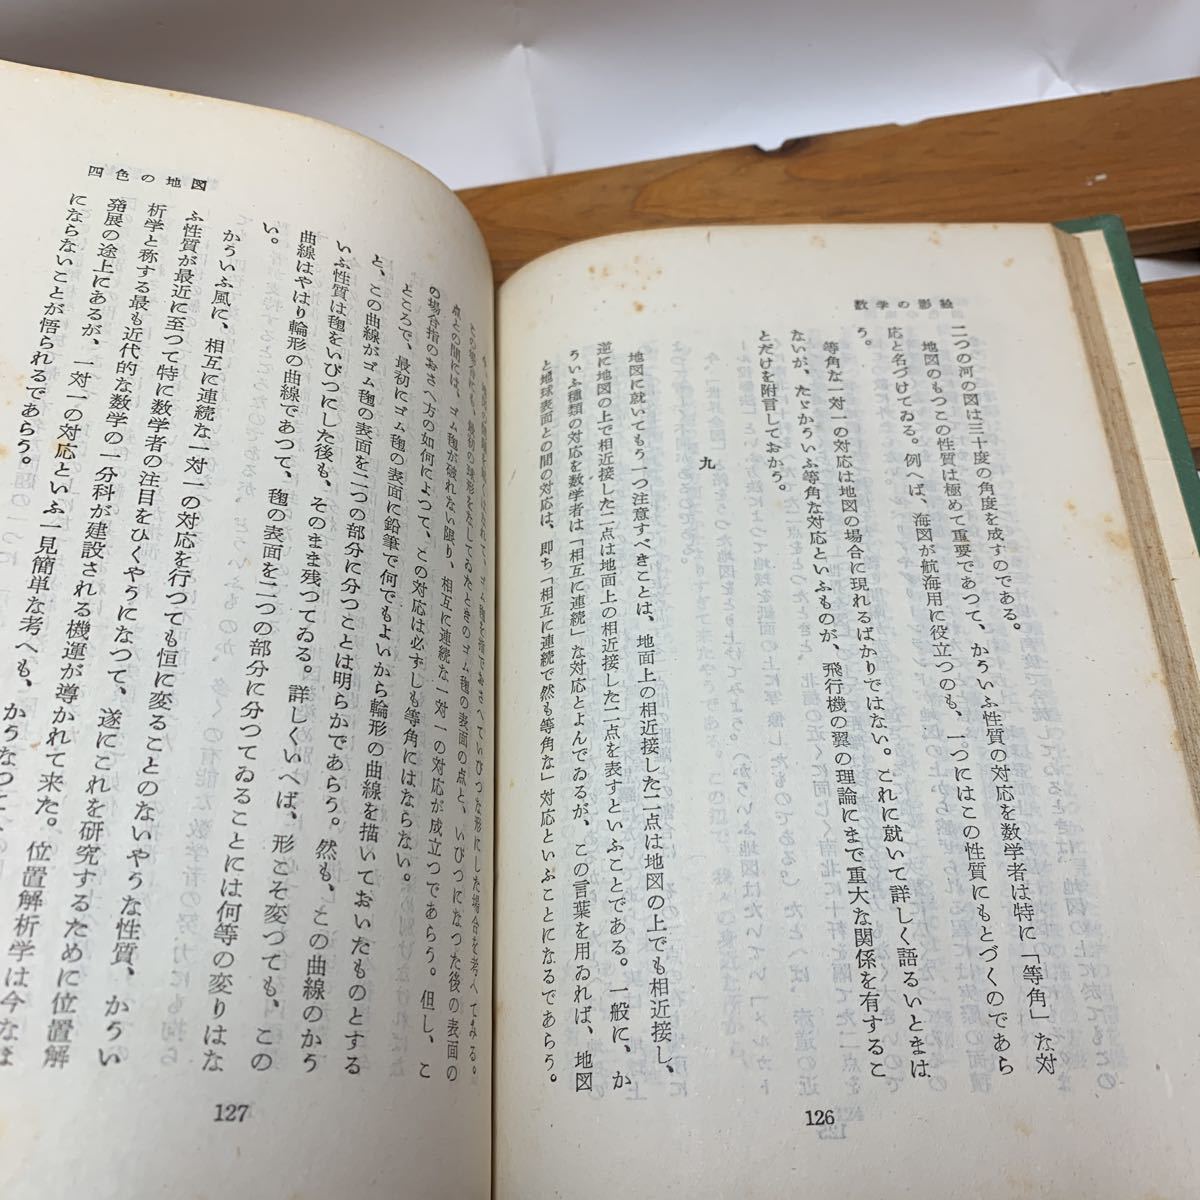 数学の影絵
二つの河の図は三十度の角度を成すのである。
地図のもつこの性質は極めて重要であつて、かういふ性質の対応を数学者は特に「等角」な対
応と名づけてゐる。例へば、海図が航海用に役立つのも、一つにはこの性質にもとづくのであら
う。
等角な一対一の対応は地図の場合に現れるばかりではない。これに就いて詳しく語るいとまは
ないが、たゞかういふ等角な対応といふものが、飛行機の翼の理論にまで重大な関係を有するこ
とだけを附言しておかう。
九
地図に就いてもう一つ注意すべきことは、地面上の相近接した二点は地図の上でも相近接し、
逆に地図の上で相近接した二点は地面上の相近接した二点を表すといふことである。一般に、か
ういふ種類の対応を数学者は「相互に連続」な対応とよんでゐるが、この言葉を用ゐれば、地図
と地球表面との間の対応は、即ち「相互に連続で然も等角な」対応といふことになるであらう。
126
四色の地図
ゴム毬を指でおさへていびつな形にした場合を考へてみる。
この場合にも、最初の球形を在してゐたときのゴム毬の表面の点と、いびつになつた後の表面の
点との間には、ゴム毬が破れない限り、相互に連続な一対一の対応が成立つであらう。但し、こ
の場合指のおさへ方の如何によつて、この対応は必ずしも等角にはならない。
ところで、最初にゴム毬の表面に鉛筆で何でもよいから輪形の曲線を描いておいたものとする
と、この曲線がゴム毬の表面を二つの部分に分つことは明らかであらう。然も、この曲線のかう
いふ性質は毬をいびつにした後も、そのまま残つてゐる。詳しくいへば、形こそ変つても、この
曲線はやはり輪形の曲線であつて、毬の表面を二つの部分に分つてゐることには何等の変りはな
い。
かういふ風に、相互に連続な一対一の対応を行つても恒に変ることのないやうな性質、かうい
ふ性質が最近に至つて特に数学者の注目をひくやうになつて、遂にこれを研究するために位置解
析学と称する最も近代的な数学の一分科が建設される機運が導かれて来た。位置解析学は今なほ
発展の途上にあるが、一対一の対応といふ一見簡単な考へも、かうなつて
にならないことが悟られるであらう。
127